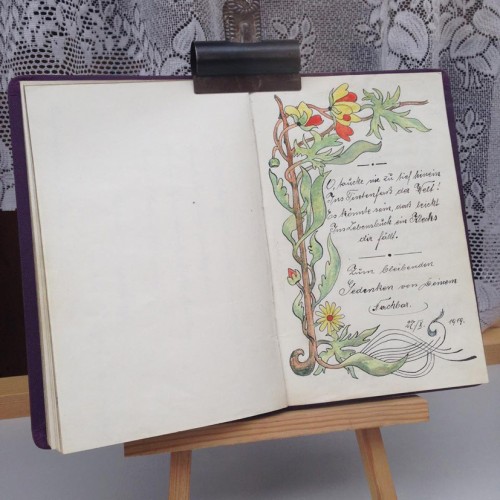 O, tauche nie zu tief hinein
Ins Tintenfaß der Welt!
Es könnte sein, daß leicht
Ins Lebensbuch ein Klecks
dir fällt.
Zum bleibenden
Gedenken von Deinem
Nachbar.
1919.